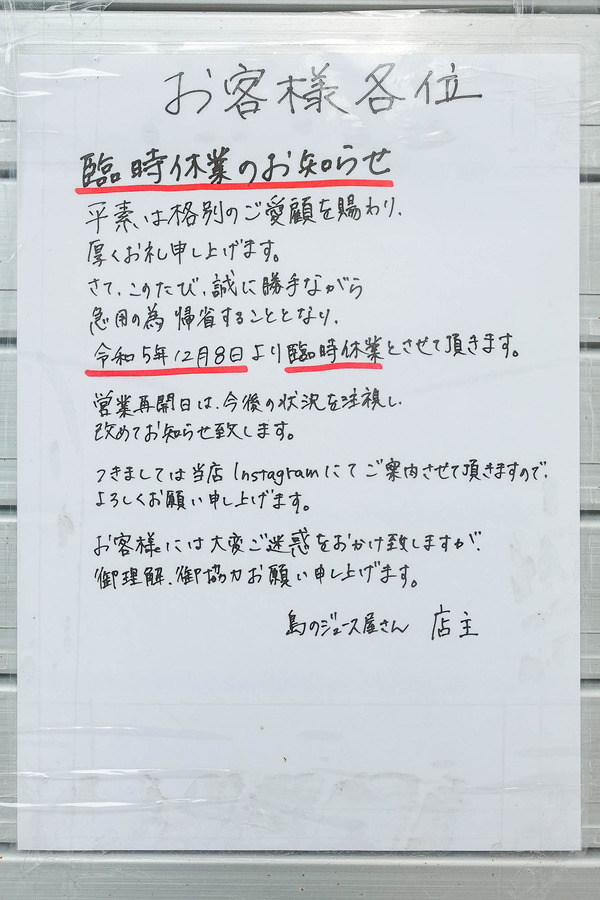 お客様各位
臨時休業のお知らせ
平素は格別のご愛顧を賜わり、
厚くお礼申し上げます。
さて、このたび、誠に勝手ながら
急用の為 帰省することとなり、
令和5年12月8日より臨時休業とさせて頂きます。
営業再開日は、今後の状況を注視し、
改めてお知らせ致します。
つきましては当店Instagramにてご案内させて頂きますので、
よろしくお願い申し上げます。
お客様には大変ご迷惑をおかけ致しますが、
御理解、御協力お願い申し上げます。
島のジュース屋さん 店主